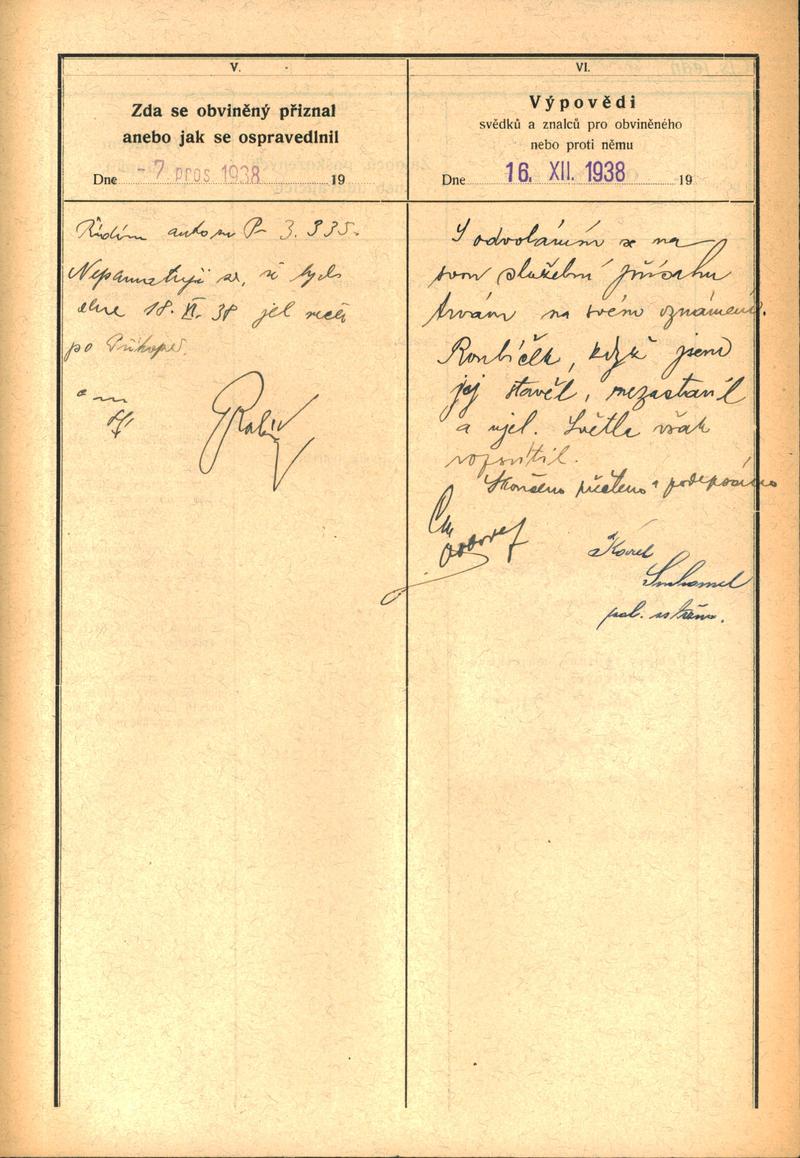 V.
Zda se obviněný přiznal
anebo jak se ospravedlnil
Dne -7 pros 1938 19
Řídím auto zn P- 3.335.
Nepamatuji se, že bych
dne 18. XI. 38 jel
po Příkopě.
VI.
Výpovědi
svědků a znalců pro obviněného
nebo proti němu
Dne 16. XII. 1938 19
S odvoláním se na
svou služební přísahu
trvám na svém oznámení.
Roubíček, když jsem
jej stavěl, nezastavil
a ujel. Světla však
rozsvítil.
Skončeno přečteno a podepsáno
Karel
Suchomel
pol. strážm.